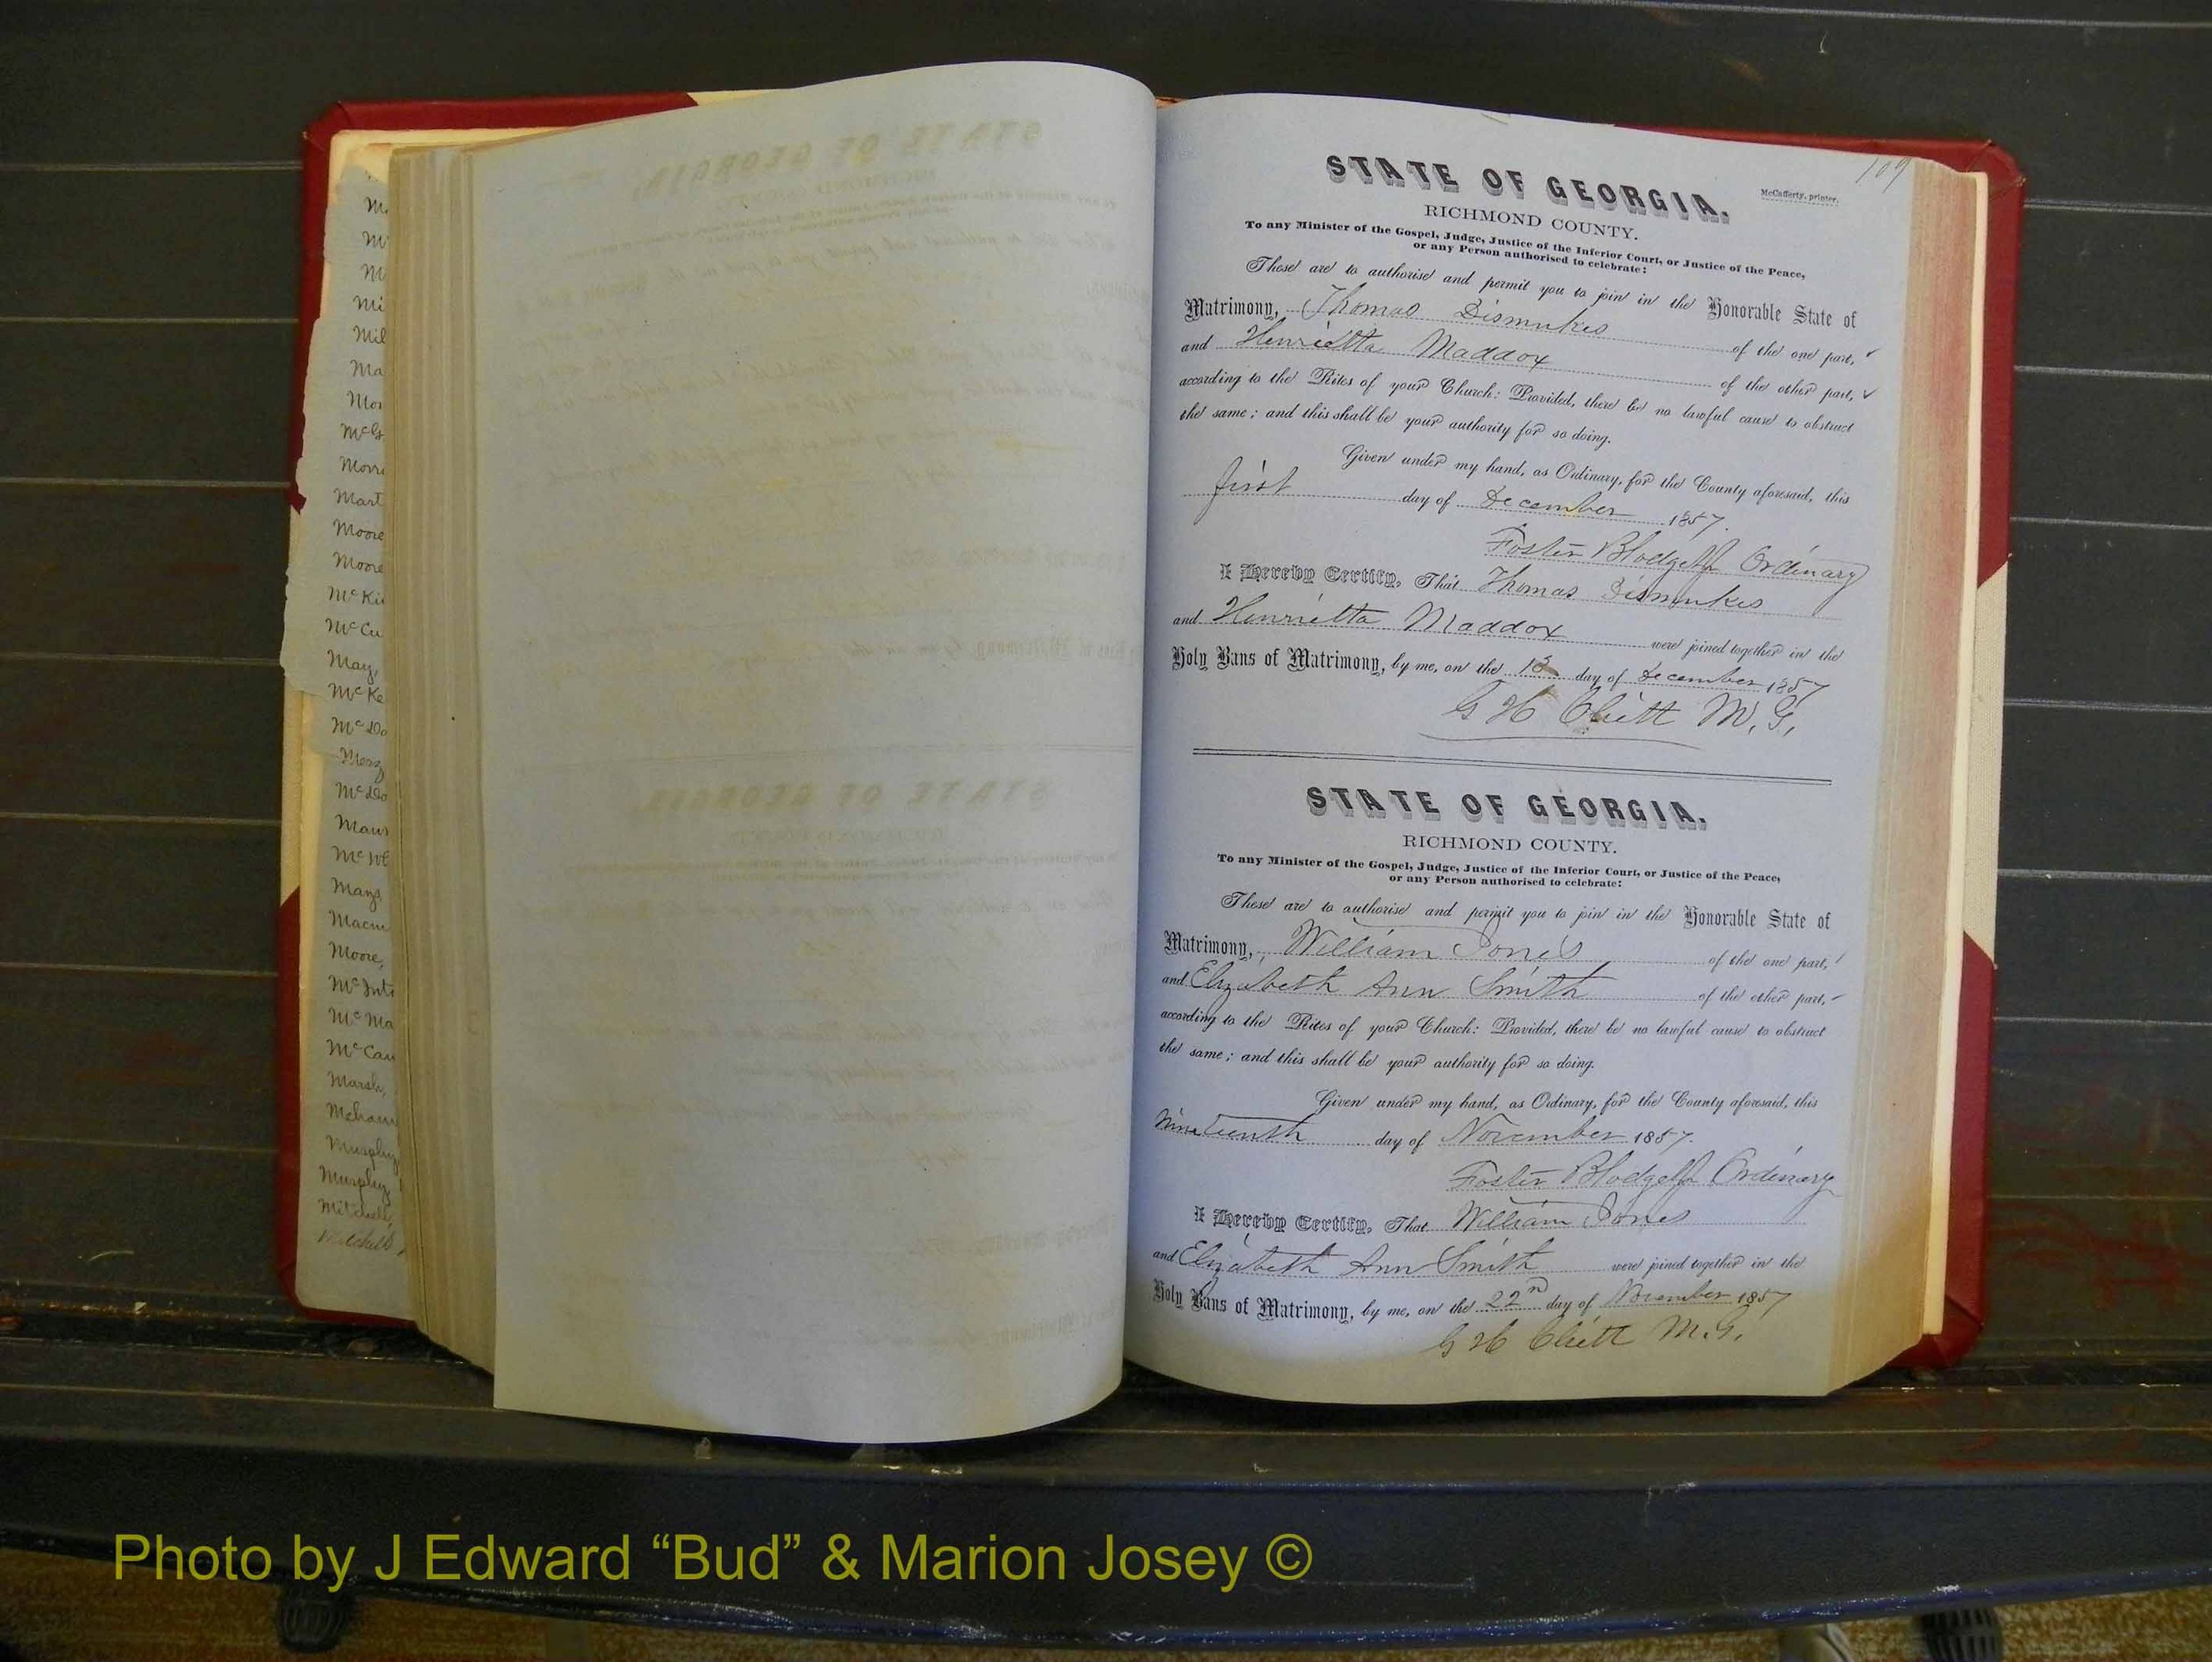 109
McCafferty, printer.
STATE OF GEORGIA.
RICHMOND COUNTY.
To any Minister of the Gospel, Judge, Justice of the Inferior Court, or Justice of the Peace,
or any Person authorised to celebrate:
These are to authorise and permit you to join in the Honorable State of
Matrimony, Thomas Dismukes of the one part,
and Henrietta Maddox of the other part,
according to the Rites of your Church: Provided, there be no lawful cause to obstruct
the same; and this shall be your authority for so doing.
Given under my hand, as Ordinary, for the County aforesaid, this
first day of December 1857.
Foster Blodget Jr Ordinary
I Hereby Certify, That Thomas Dismukes
and Henrietta Maddox were joined together in the
Holy Bans of Matrimony, by me, on the day of December 1857
G H Cliett M. G.
STATE OF GEORGIA.
RICHMOND COUNTY.
To any Minister of the Gospel, Judge, Justice of the Inferior Court, or Justice of the Peace,
or any Person authorised to celebrate:
These are to authorise and permit you to join in the Honorable State of
Matrimony, William Jones of the one part,
and Elizabeth Ann Smith of the other part,
according to the Rites of your Church: Provided, there be no lawful cause to obstruct
the same; and this shall be your authority for so doing.
Given under my hand, as Ordinary, for the County aforesaid, this
Nineteenth day of November 1857.
Foster Blodget Jr Ordinary
I Hereby Certify, That William Jones
and Elizabeth Ann Smith were joined together in the
Holy Bans of Matrimony, by me, on the 22nd day of November 1857
G H Cliett M. G.
Mil
Ma
Mor
McG
Morri
Mart
Moore
Moore
McKi
McCu
May,
McKe
McDo
McDo
Moore,
McInt
McMa
McCau
Marsh,
Murphy
Murphy
Mitchell,
Mitchell
Photo by J Edward “Bud” & Marion Josey ©